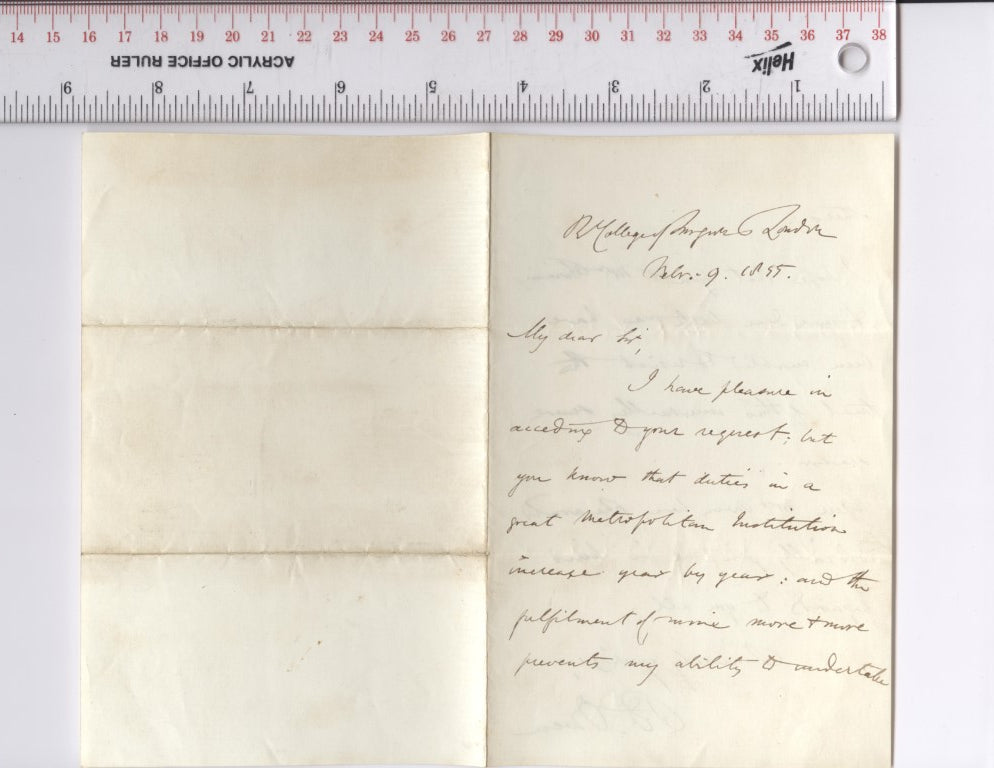 14 15 16 17 18 19 20 21 22 23 24 25 26 27 28 29 30 31 32 33 34 35 36 37 38
ACRYLIC OFFICE RULER
Helix
9 8 7 6 5 4 3 2 1
R College of Surgeons London
Febr. 9. 1855.
My dear Sir,
I have pleasure in
acceding to your request; but
you know that duties in a
great Metropolitan Institution
increase year by year: and the
fulfilment of mine more & more
prevents my ability to undertake